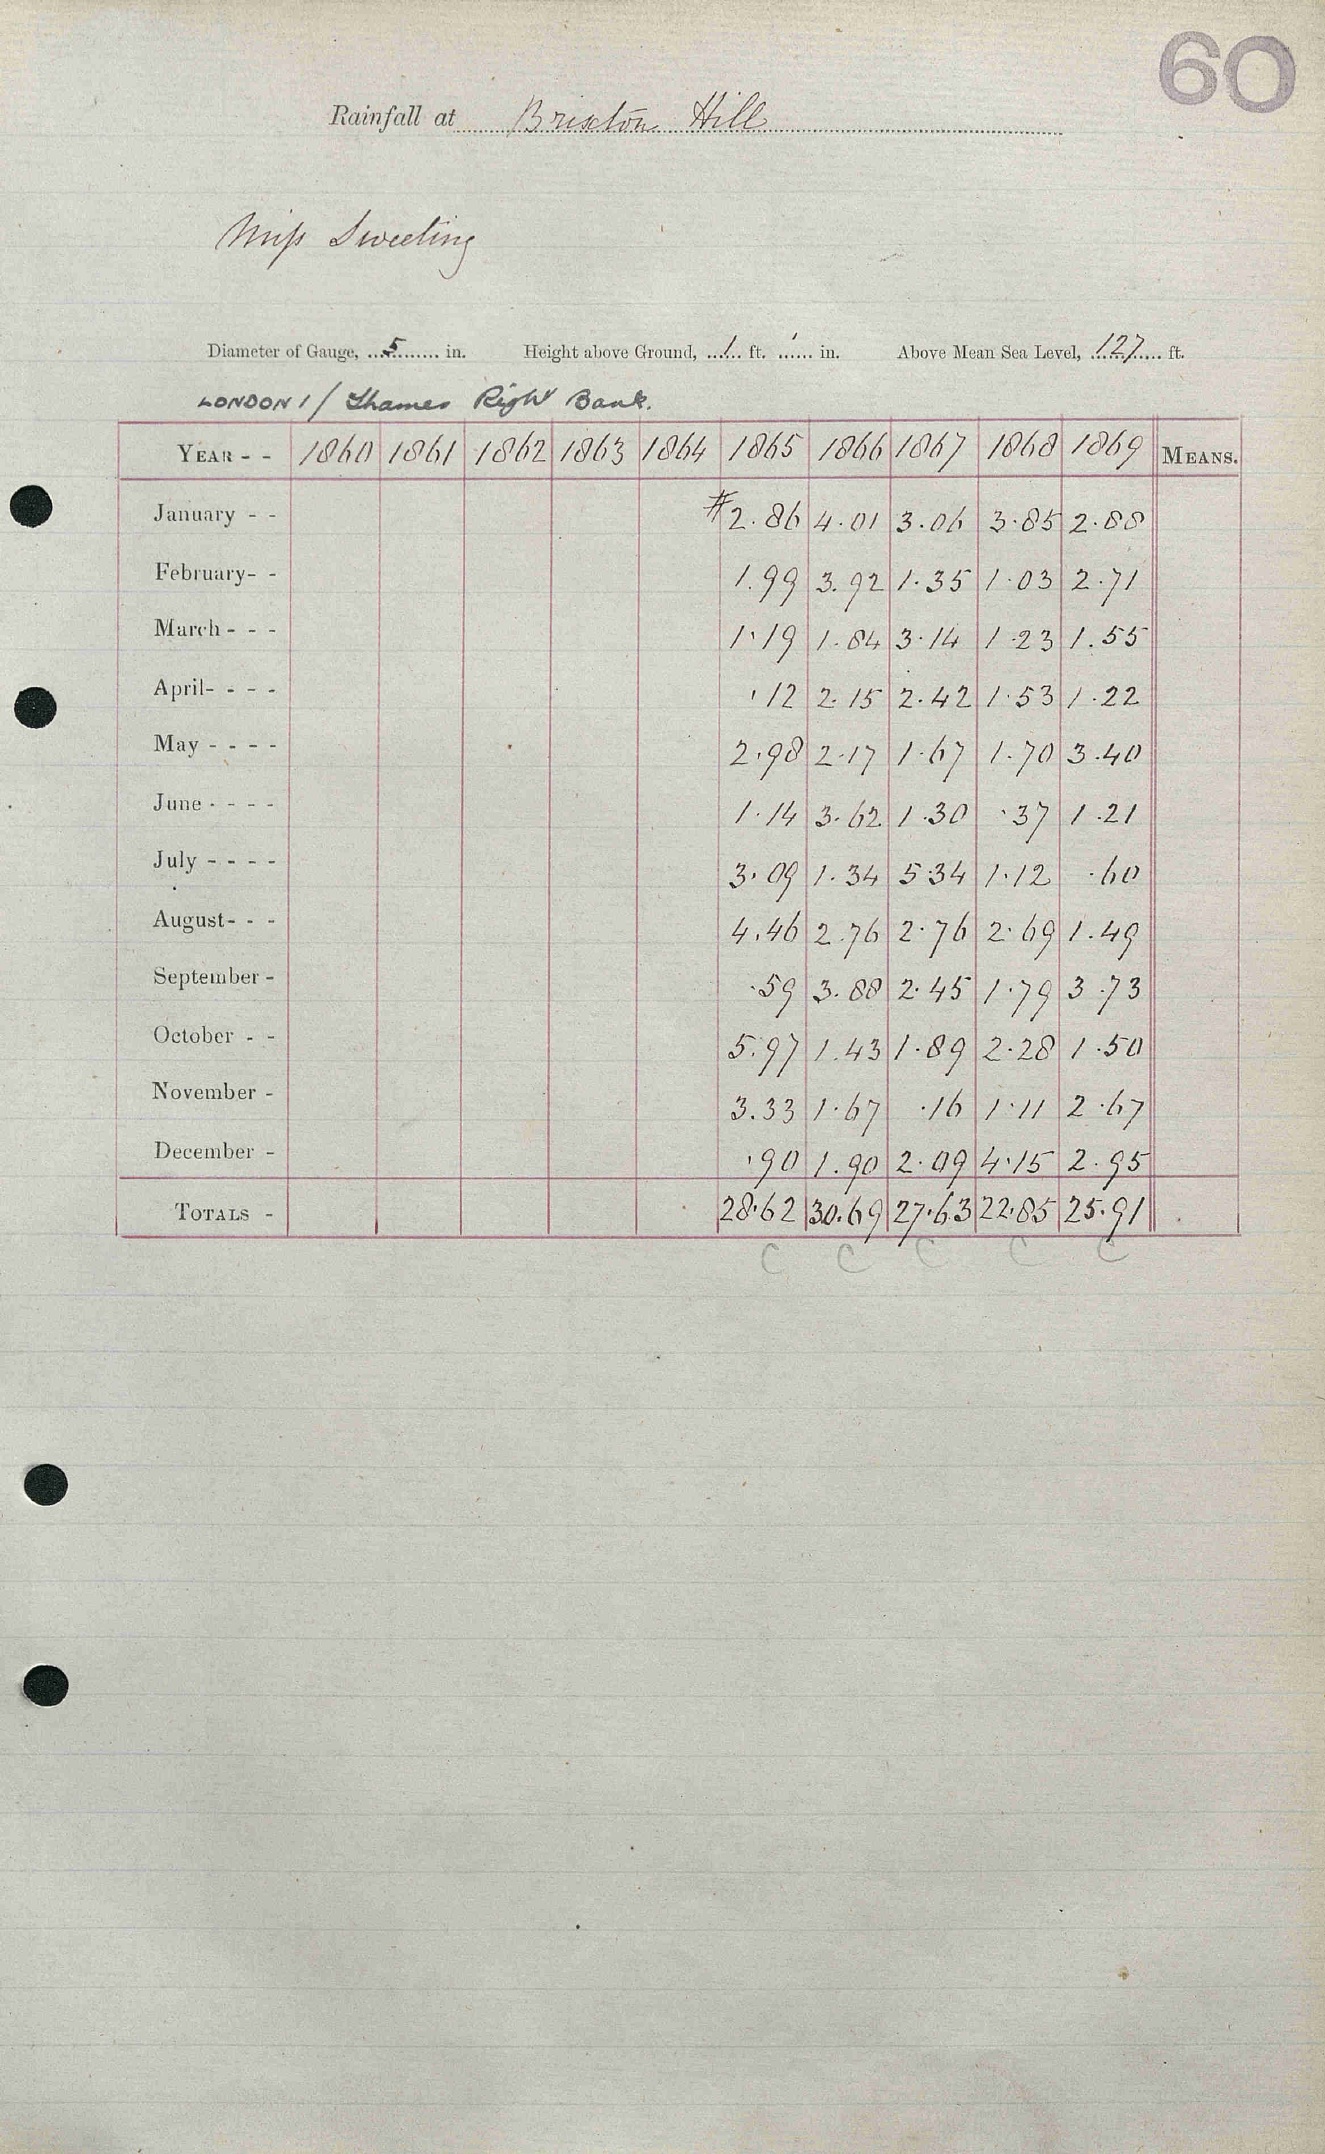 60
Rainfall at Brixton Hill
Miss Sweeting
Diameter of Gauge, 5 in. Height above Ground, 1 ft. in. Above Mean Sea Level, 127 ft.
LONDON 1 / Thames Right Bank.
YEAR - - 1860 1861 1862 1863 1864 1865 1866 1867 1868 1869 MEANS.
January - - #2.86 4.01 3.06 3.85 2.88
February - - 1.99 3.92 1.35 1.03 2.71
March - - - 1.19 1.84 3.14 1.23 1.55
April - - - - .12 2.15 2.42 1.53 1.22
May - - - - 2.98 2.17 1.67 1.70 3.40
June - - - - 1.14 3.62 1.30 .37 1.21
July - - - - 3.09 1.34 5.34 1.12 .60
August - - - 4.46 2.76 2.76 2.69 1.49
September - .59 3.88 2.45 1.79 3.73
October - - 5.97 1.43 1.89 2.28 1.50
November - 3.33 1.67 .16 1.11 2.67
December - .90 1.90 2.09 4.15 2.95
TOTALS - 28.62 30.69 27.63 22.85 25.91
C C C C C